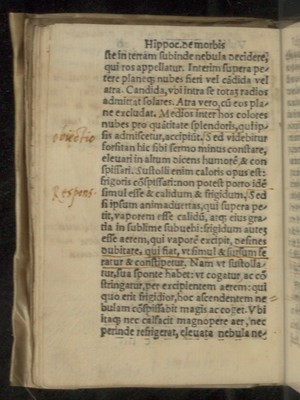 Hippoc. de morbis
ste in terram subinde nebula decidere,
qui ros appellatur. Interim supera pe-
tere planeq; nubes fieri vel cādida vel
atra. Candida, vbi intra se totas radios
admittat solares. Atra vero, cū eos pla-
ne excludat. Medios inter hos colores
nubes pro quātitate splendoris, qui ip-
sis admiscetur, accipiūt. Sed videbitur
obiectio
forsitan hic sibi sermo minus constare,
eleuari in altum dicens humorē & con
spissari. Sustolli enim caloris opus est:
frigoris cōspissari: non potest porro idē
Respons.
simul esse & calidum & frigidum, Sed
si ipsum animaduertas, qui supera pe-
tit, vaporem esse calidū, atq; eius gra-
tia in sublime subuehi: frigidum autem
esse aerem, qui vaporē excipit, desines
dubitare, qui fiat, vt simul & sursum fe
ratur & constipetur. Nam vt sustolla-
tur, sua sponte habet: vt cogatur ac cō
stringatur, per excipientem aerem: qui
quo erit frigidior, hoc ascendentem ne
bulam cōspissabit magis ac coget. Vbi
itaq; nec calfacit magnopere aer, nec
perinde refrigerat, eleuata nebula ne-